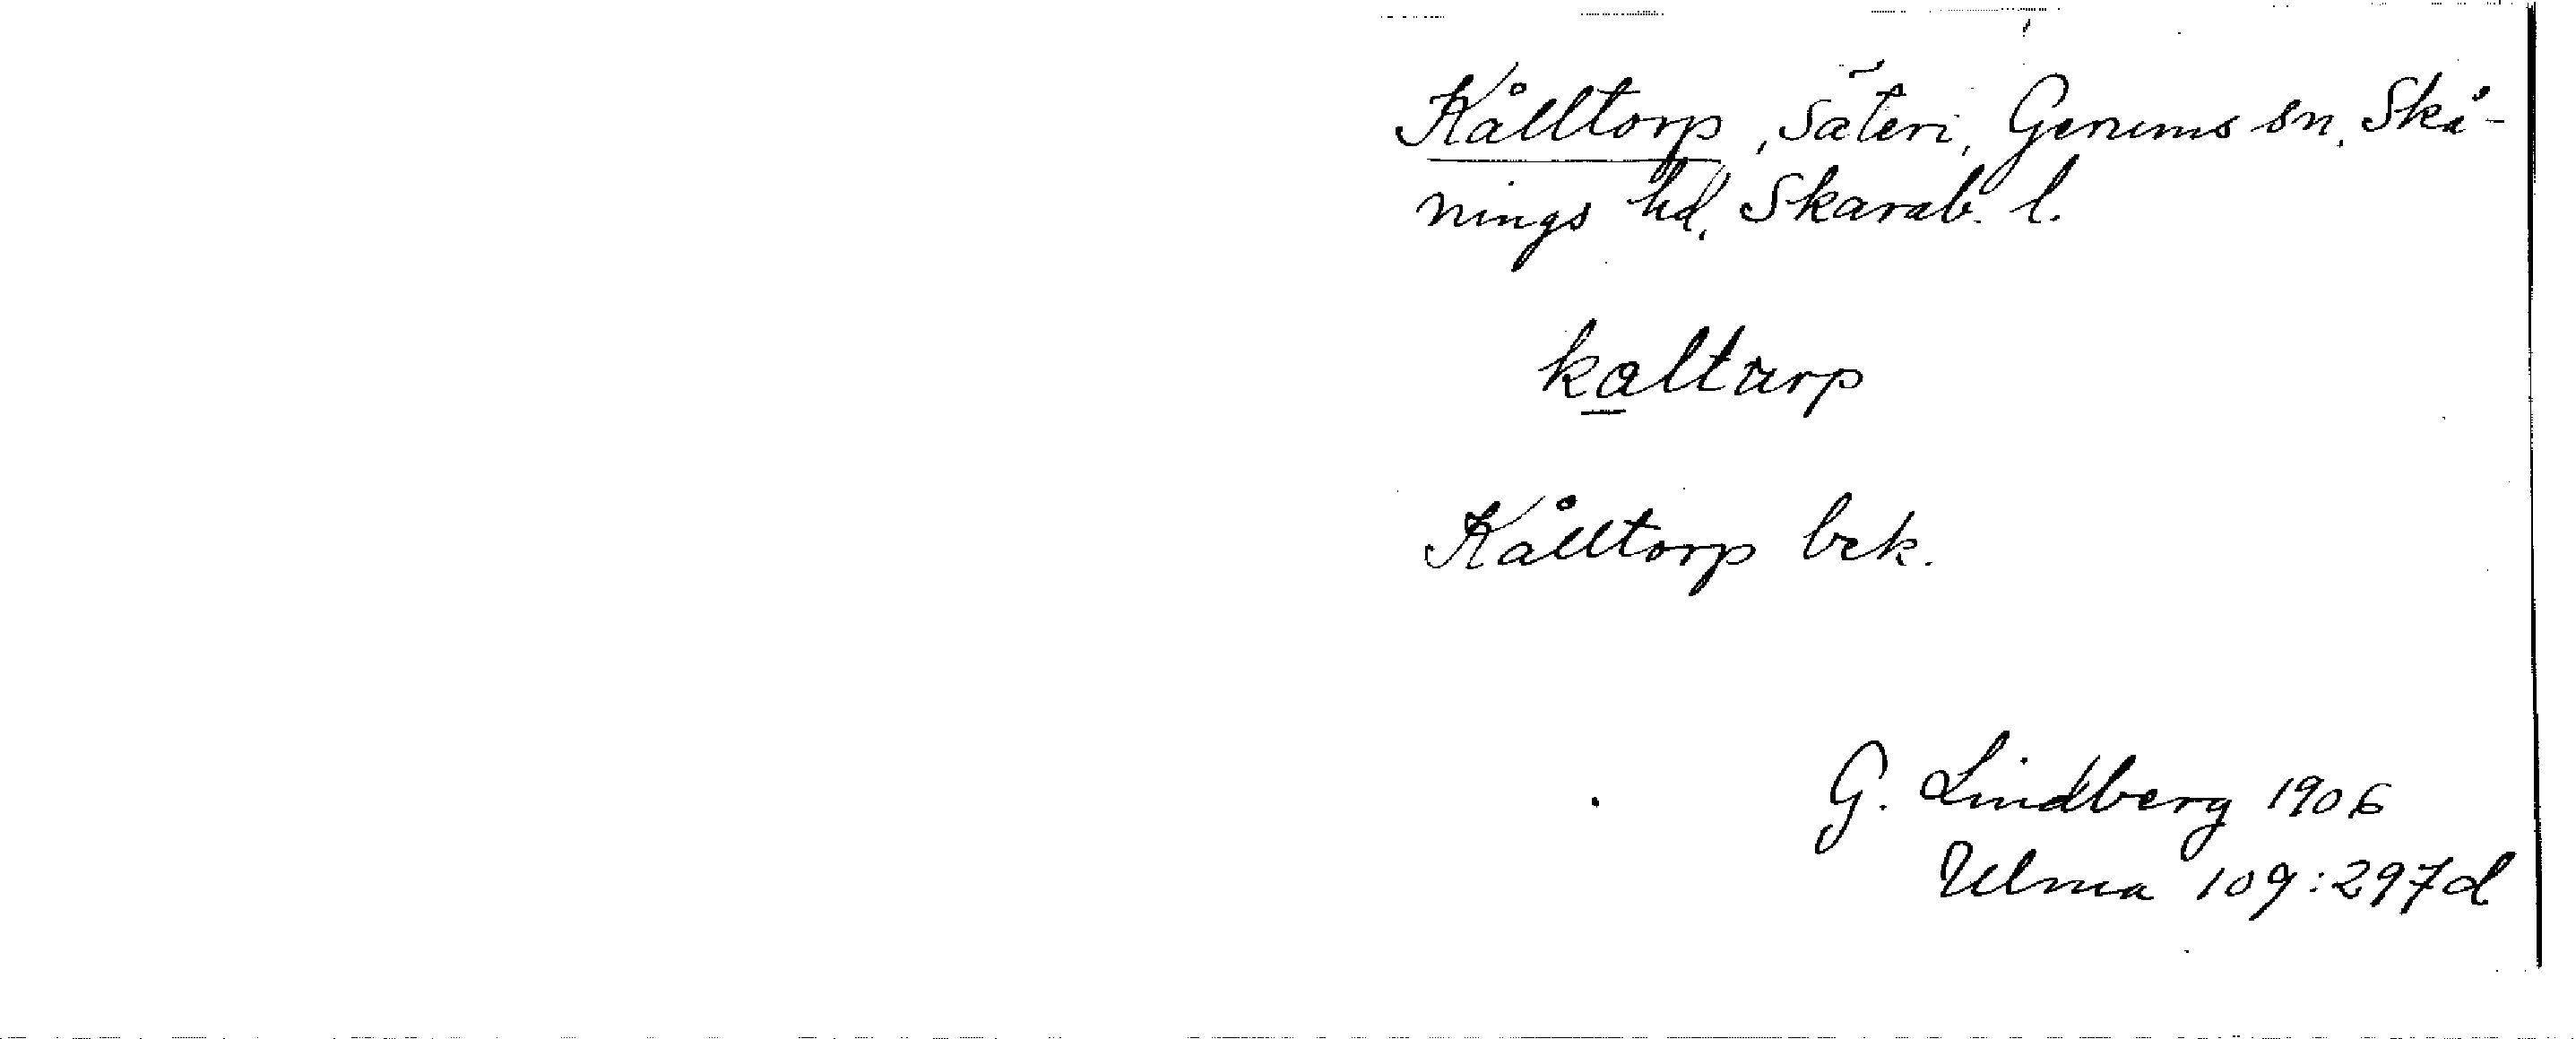 Kålltorp, säteri, Gerums sn, Skå-
nings hd, Skarab. l.
kaltarp
Kålltorp bek.
G. Lindberg 1906
Ulma 109:297d